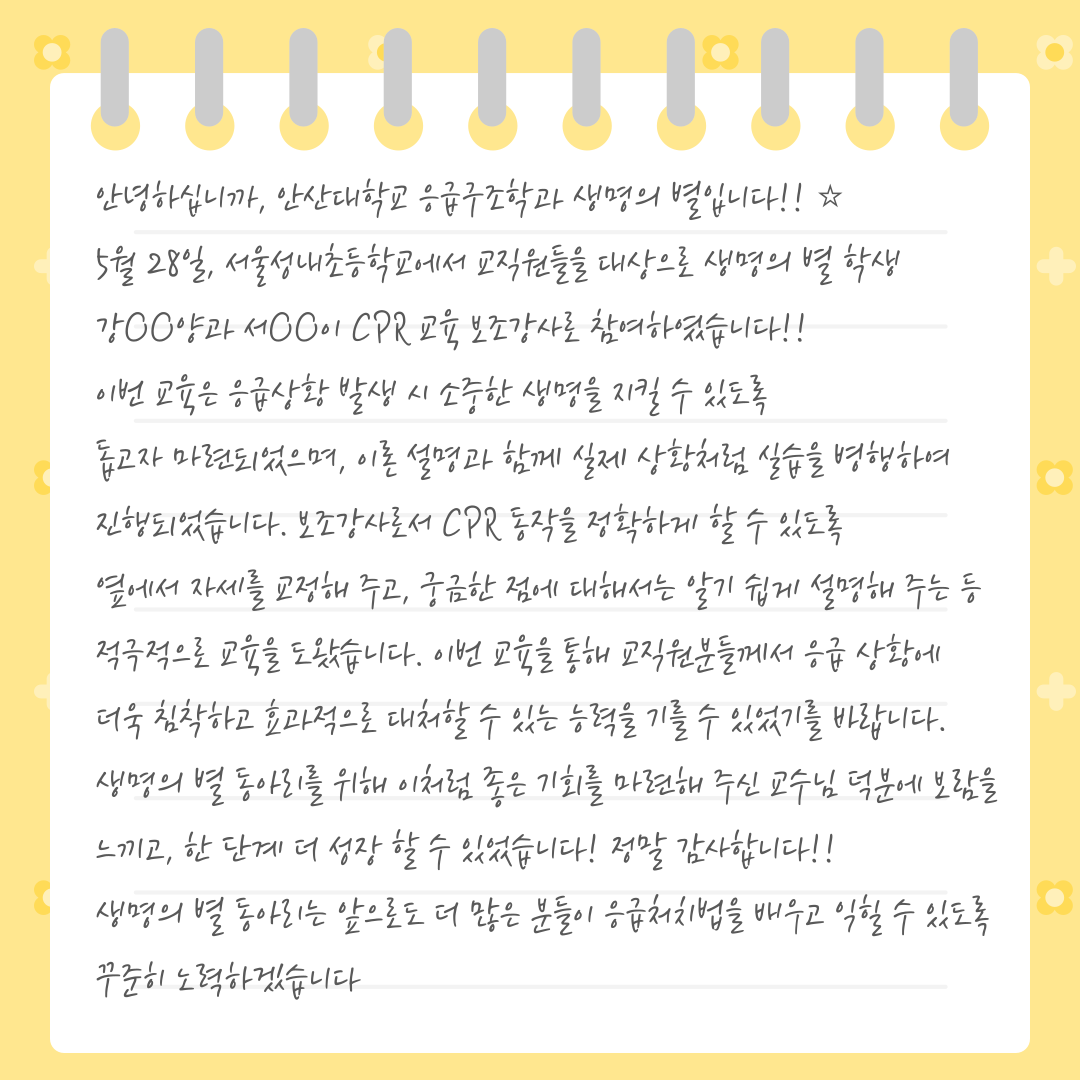 안녕하십니까, 안산대학교 응급구조학과 생명의 별입니다!! ☆
5월 28일, 서울성내초등학교에서 교직원들을 대상으로 생명의 별 학생
강OO양과 서OO이 CPR 교육 보조강사로 참여하였습니다!!
이번 교육은 응급상황 발생 시 소중한 생명을 지킬 수 있도록
돕고자 마련되었으며, 이론 설명과 함께 실제 상황처럼 실습을 병행하여
진행되었습니다. 보조강사로서 CPR 동작을 정확하게 할 수 있도록
옆에서 자세를 교정해 주고, 궁금한 점에 대해서는 알기 쉽게 설명해 주는 등
적극적으로 교육을 도왔습니다. 이번 교육을 통해 교직원분들께서 응급 상황에
더욱 침착하고 효과적으로 대처할 수 있는 능력을 기를 수 있었기를 바랍니다.
생명의 별 동아리를 위해 이처럼 좋은 기회를 마련해 주신 교수님 덕분에 보람을
느끼고, 한 단계 더 성장 할 수 있었습니다! 정말 감사합니다!!
생명의 별 동아리는 앞으로도 더 많은 분들이 응급처치법을 배우고 익힐 수 있도록
꾸준히 노력하겠습니다